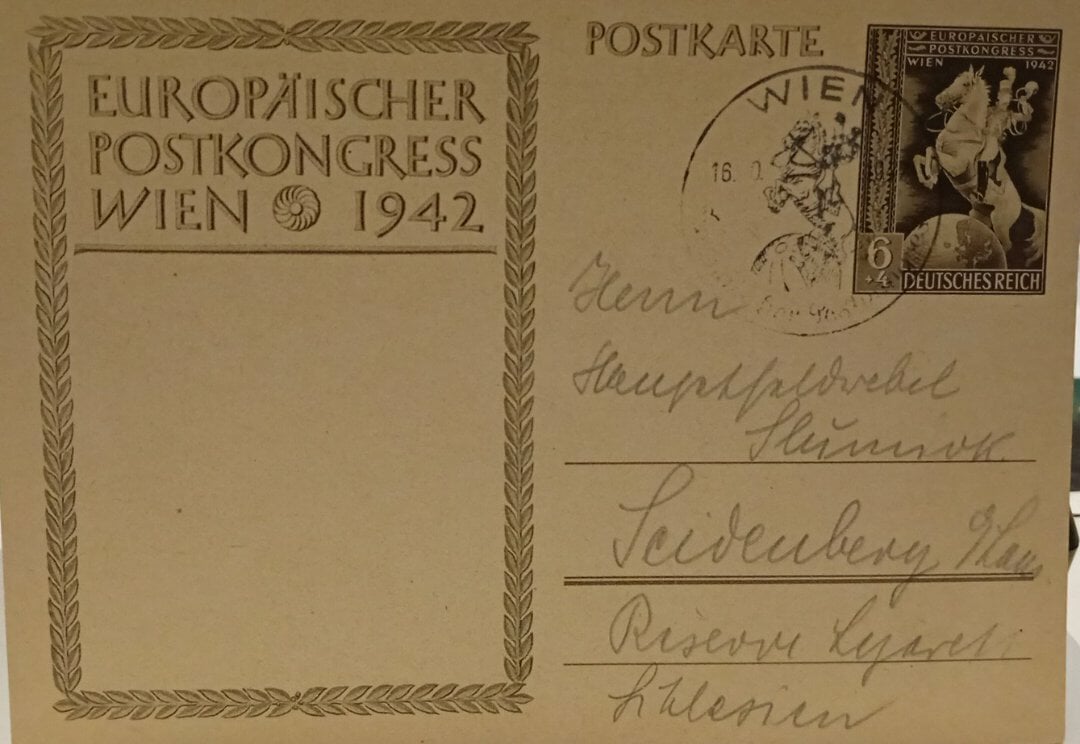 EUROPÄISCHER
POSTKONGRESS
WIEN 1942
POSTKARTE
EUROPÄISCHER
POSTKONGRESS
WIEN 1942
6
+4
DEUTSCHES REICH
WIEN
16.
Herrn
Hauptfeldwebel
Seidenberg
Reserve Lazarett
Schlesien